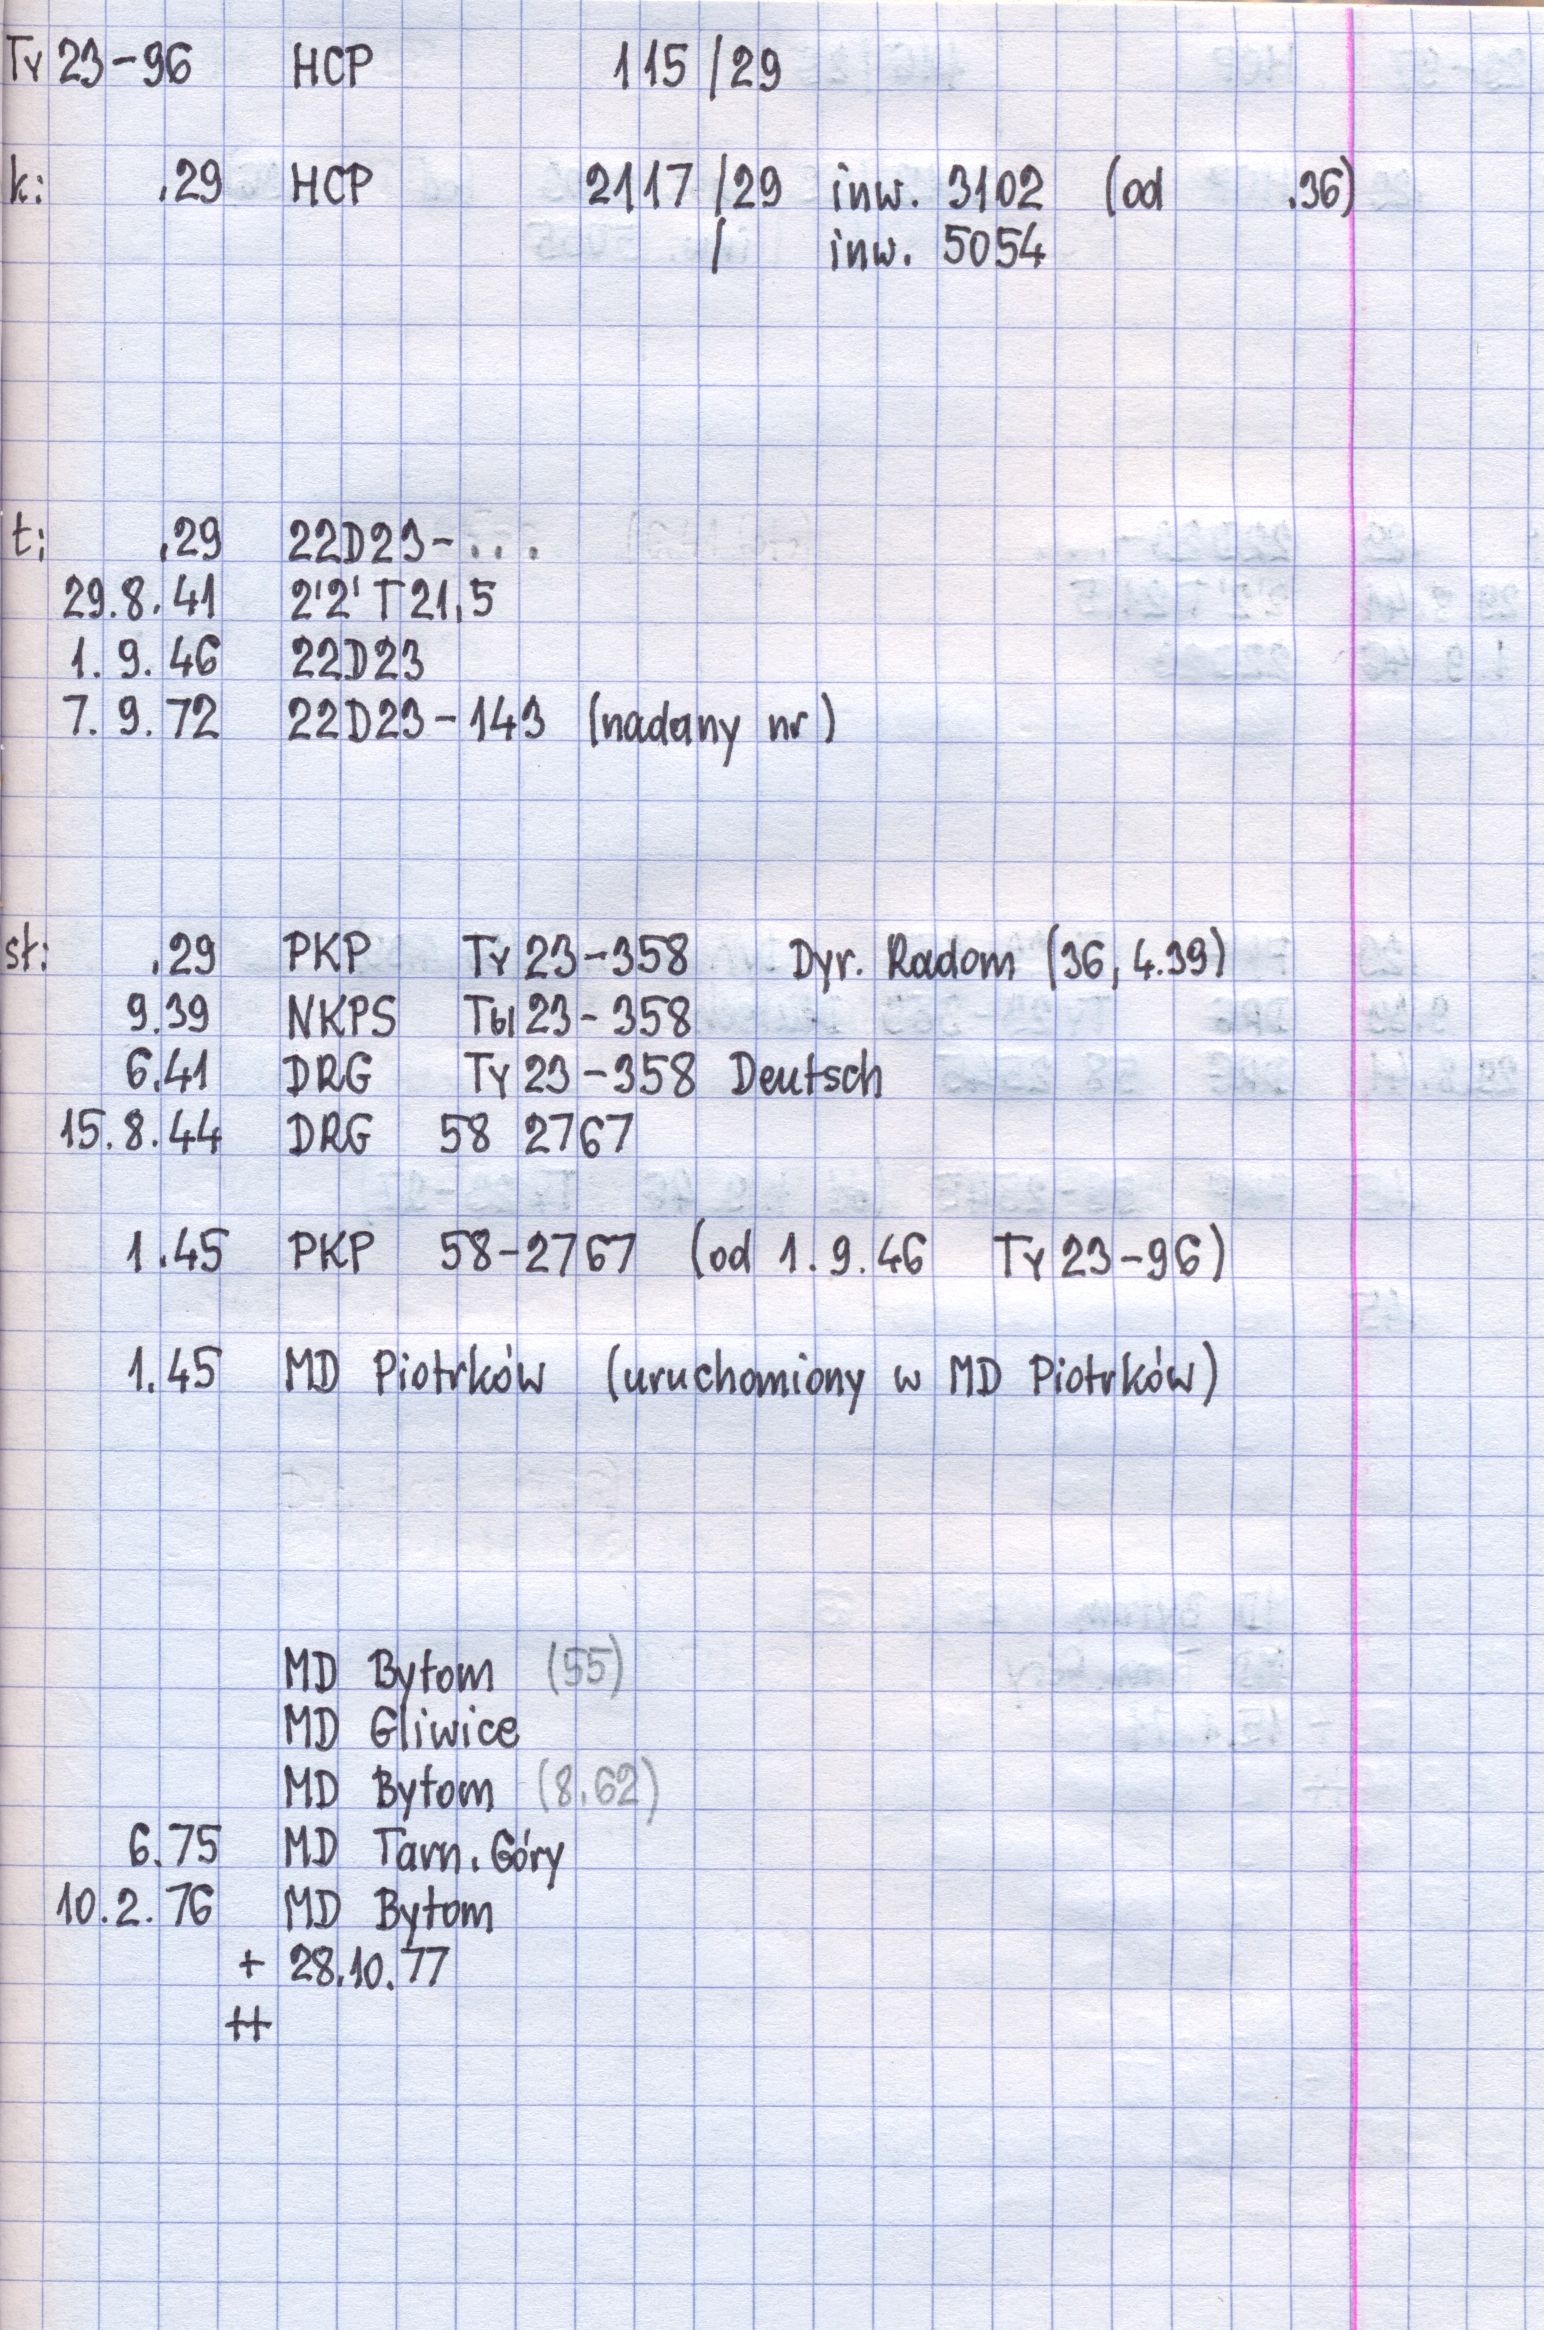 Ty 23-96 HCP 115/29
k: .29 HCP 2117/29 inw. 3102 (od .36)
/ inw. 5054
t: .29 22D23-...
29.8.41 2'2' T 21,5
1.9.46 22D23
7.9.72 22D23-143 (nadany nr)
sł: .29 PKP Ty 23-358 Dyr. Radom (36, 4.39)
9.39 NKPS Ты 23-358
6.41 DRG Ty 23-358 Deutsch
15.8.44 DRG 58 2767
1.45 PKP 58-2767 (od 1.9.46 Ty 23-96)
1.45 MD Piotrków (uruchomiony w MD Piotrków)
MD Bytom (55)
MD Gliwice
MD Bytom (8.62)
6.75 MD Tarn. Góry
10.2.76 MD Bytom
+ 28.10.77
++